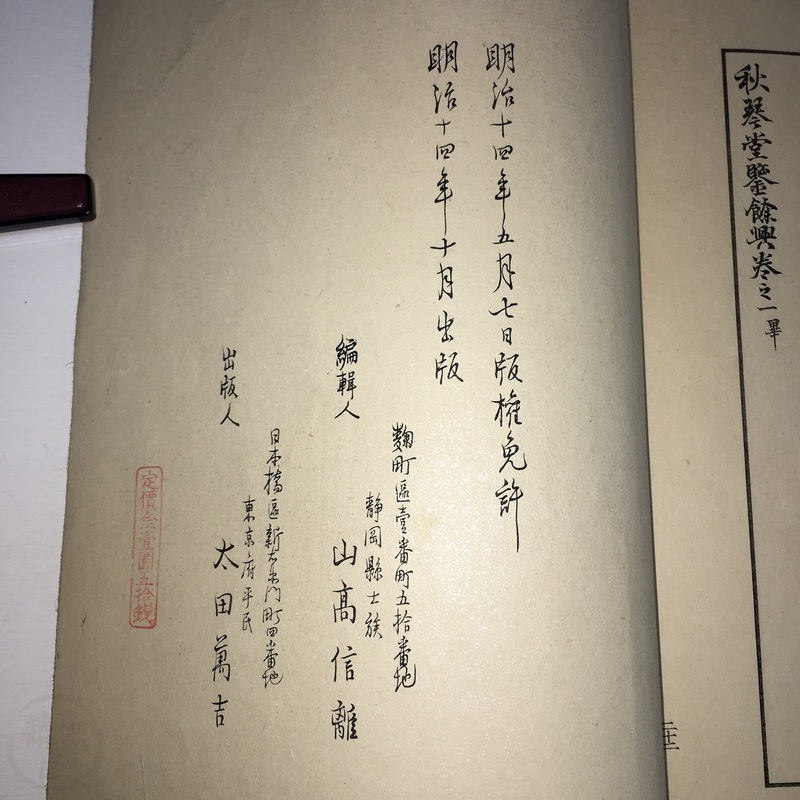 秋琴堂鑒餘興卷之一畢
二十三
明治十四年五月七日版權免許
明治十四年十月出版
麴町區壹番町五拾番地
靜岡縣士族
編輯人
山髙信離
日本橋區新右衛門町四番地
東京府平民
出版人
太田萬吉
定價金壹圓五拾錢